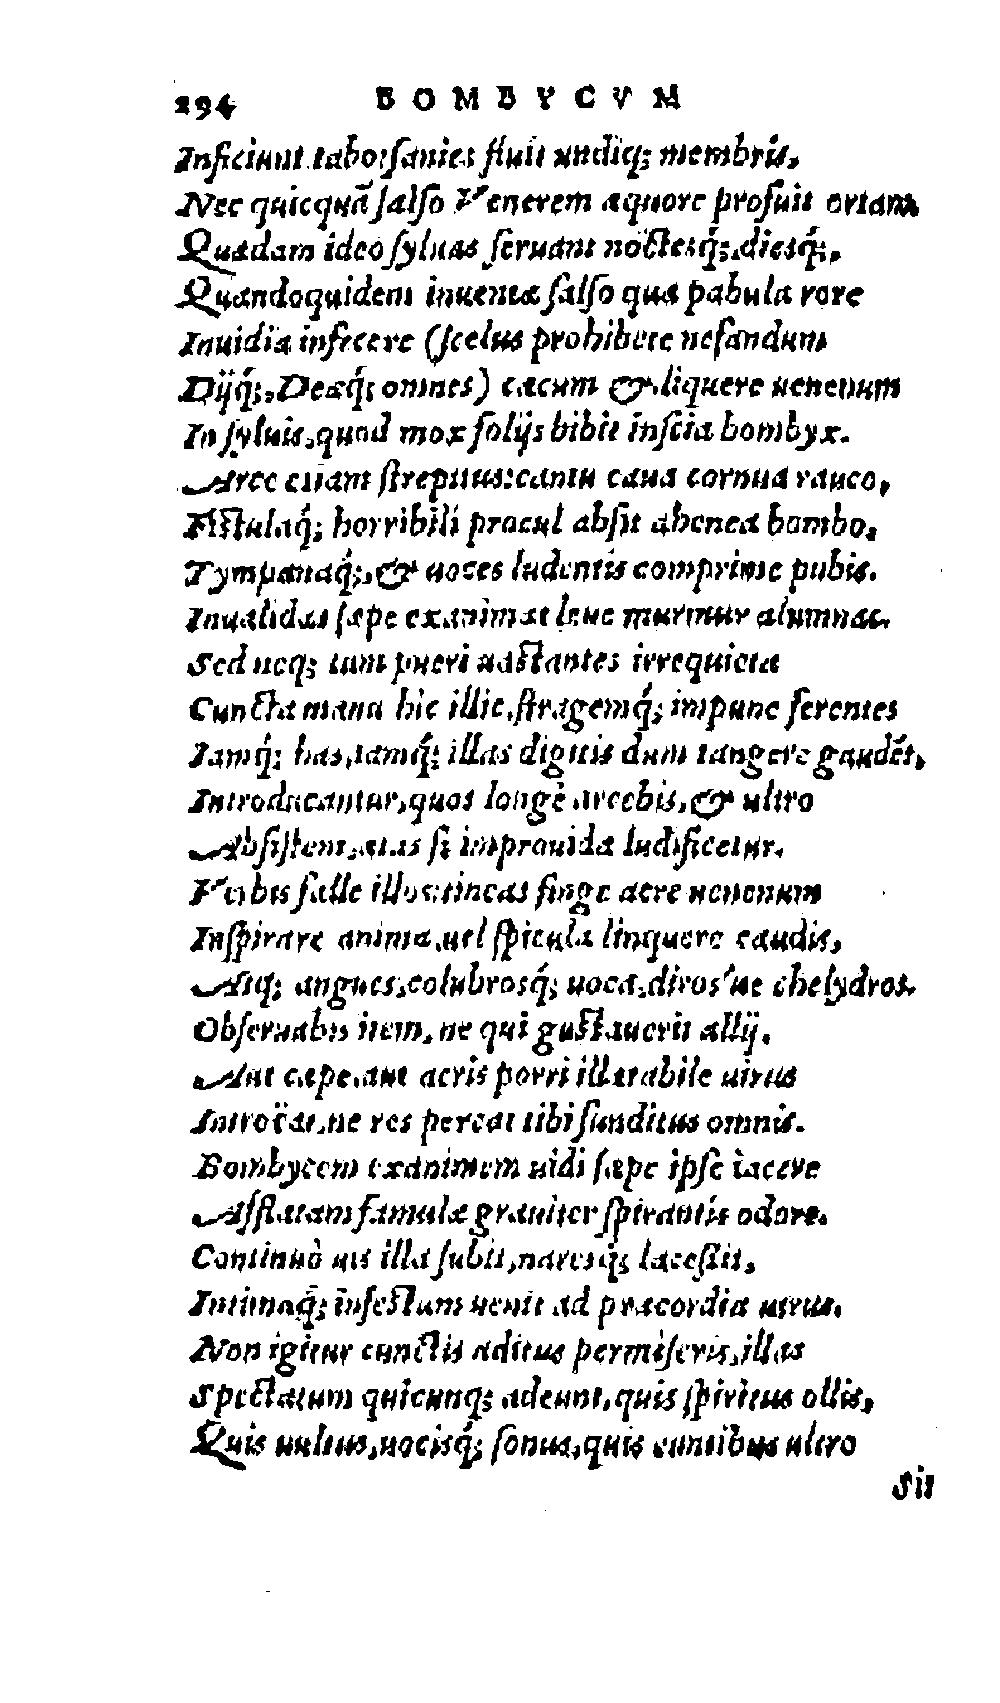 294 BOMBYCVM
Inficiunt tabo: sanies fluit undiq; membris,
Nec quicquã salso Venerem aquore profuit ortam.
Quædam ideo syluas seruant noctesq́;,diesq́;,
Quandoquidem inuentæ falso quæ pabula rore
Inuidia infecere (scelus prohibete nefandum
Dijq́;,Deæq́; omnes) cæcum & liquere uenenum
In syluis,quod mox folijs bibit inscia bombyx.
Arce etiam strepitus: cantu caua cornua rauco,
Fistulaq́; horribili procul absit ahenea bombo,
Tympanaq́;,& uoces ludentis comprime pubis.
Inualidas sæpe exanimat leue murmur alumnas.
Sed neq; tum pueri uastantes irrequieta
Cuncta manu hic illic,stragemq́; impune ferentes
Iamq́; has,iamq́; illas digitis dum tangere gaudẽt,
Introducantur,quos longè arcebis,& ultro
Absistent,ætas si improuida ludificetur.
Verbis falle illos:tineas finge acre uenenum
Inspirare anima,uel spicula linquere caudis,
Atq; angues,colubrosq́; uoca,diros'ue chelydros.
Obseruabis item,ne qui gustauerit allij,
Aut cæpe,aut acris porri illætabile uirus
Introëat,ne res pereat tibi funditus omnis.
Bombycem exanimem uidi sæpe ipse iacere
Afflatam famulæ grauiter spirantis odore.
Continuò uis illa subit,naresq́; lacessit,
Intimaq́; infestum uenit ad præcordia uirus.
Non igitur cunctis aditus permiseris,illas
Spectatum quicunq; adeunt,quis spiritus ollis,
Quis uultus,uocisq́; sonus,quis euntibus ultro
Sit